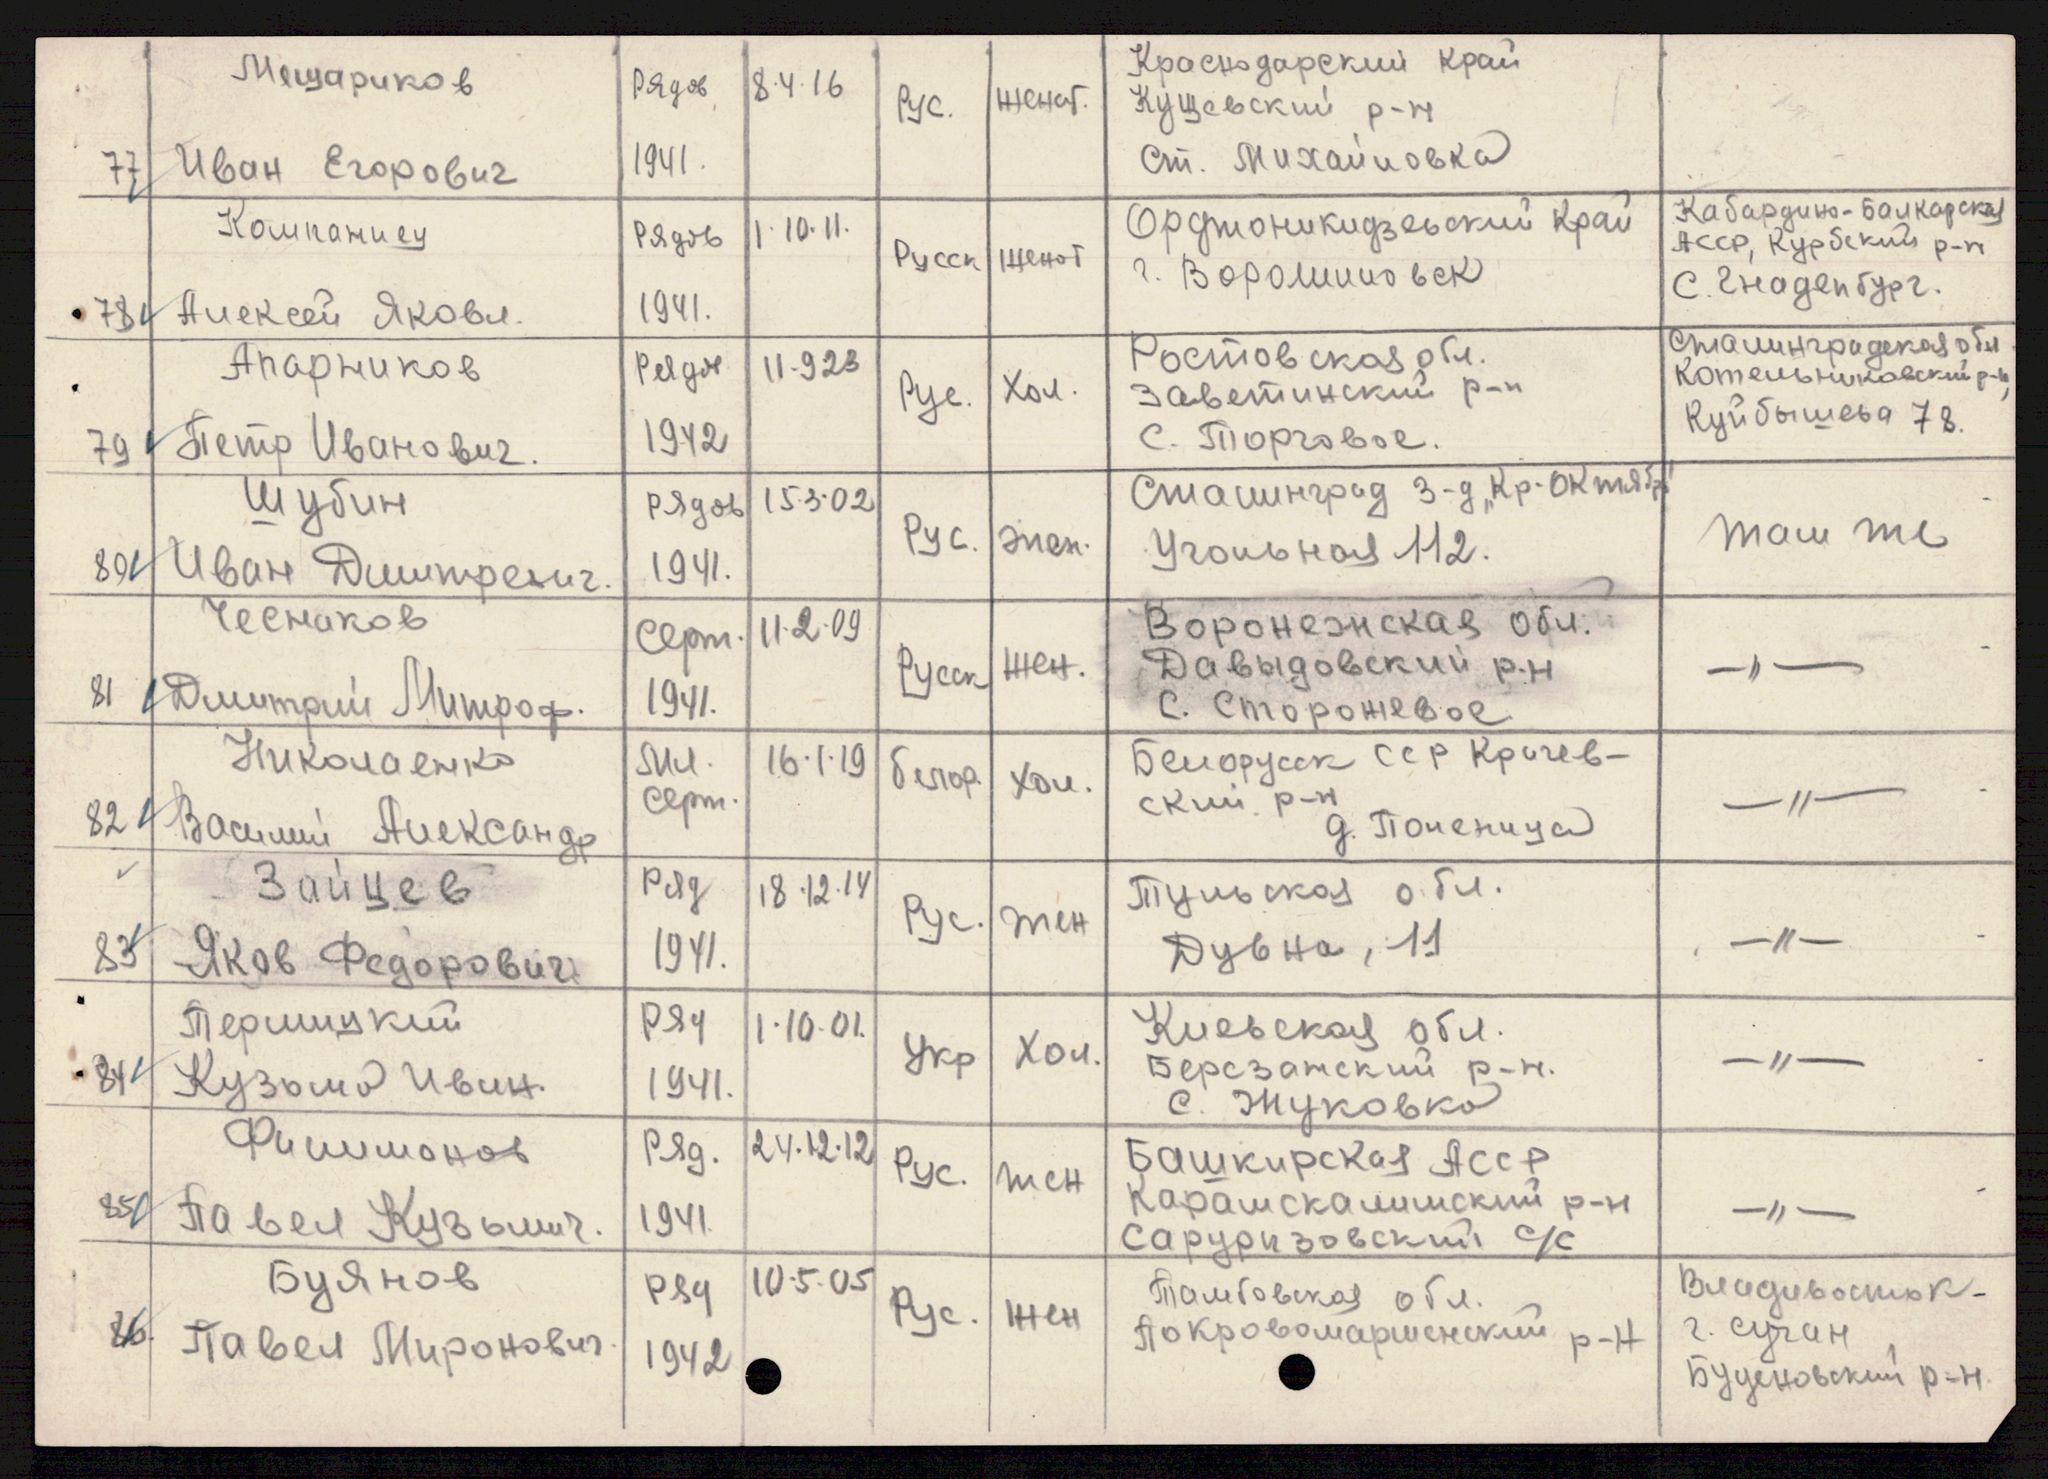 Мещариков Рядов 8.4.16 Рус. Женат. Краснодарский Край
Кущевский р-н
77 Иван Егорович 1941. ст. Михайловка
Компаниец Рядов 1.10.11. Русск Женат Орджоникидзевский Край Кабардино-Балкарская
г. Ворошиловск АССР, Курбский р-н
78 Алексей Яковл. 1941. С. Гнаденбург.
Апарников Рядов 11.923 Рус. Хол. Ростовская обл. Сталинградская обл
Заветинский р-н Котельниковский р-н,
79 Петр Иванович. 1942 С. Торговое. Куйбышева 78.
Шубин Рядов 15.3.02 Рус. Жен. Сталинград З-д „Кр-Октябрь"
80 Иван Дмитревич. 1941. Угольная 112. Там же
Чеснаков Серж. 11.2.09 Русск Жен. Воронежская обл.
Давыдовский р.н —"—
81 Дмитрий Митроф. 1941. С. Сторожевое
Николаенко Мл. 16.1.19 белор. Хол. Белорусск ССР Кричев-
Серж. ский р-н —"—
82 Василий Александр д. Поленица
Зайцев Ряд 18.12.14 Рус. Жен Тульская обл.
83 Яков Федорович 1941. Дувна, 11 —"—
Терлицкий Ряд 1.10.01. Укр Хол. Киевская обл.
Березанский р-н. —"—
84 Кузьма Иван. 1941. С. Жуковка
Филимонов Ряд. 24.12.12 Рус. Жен Башкирская АССР
Карамскалимский р-н —"—
85 Павел Кузьмич. 1941. Саруризовский с/с
Буянов Ряд 10.5.05 Рус. Жен Тамбовская обл. Владивосток-
Покровомаршенский р-н г. Сучан
86. Павел Миронович. 1942 Буденовский р-н.